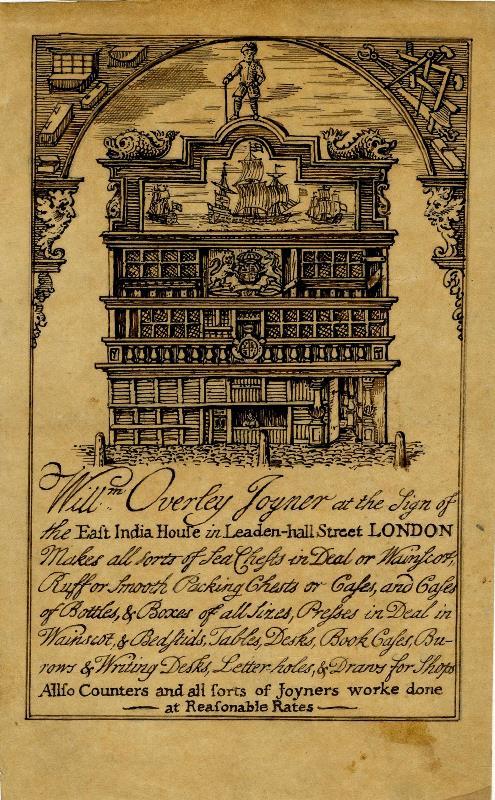 Will.m Overley Joyner at the Sign of
the Eaſt India Houſe in Leaden-hall Street LONDON
Makes all ſorts of Sea Cheſts in Deal or Wainſcot,
Ruff or ſmooth Packing Cheſts or Caſes, and Caſes
of Bottles, & Boxes of all ſizes, Preſſes in Deal in
Wainſcot, & Bedſtids, Tables, Desks, Book Caſes, Bu-
rows & Writing Desks, Letter holes, & Draws for Shops
Allſo Counters and all ſorts of Joyners worke done
— at Reaſonable Rates —